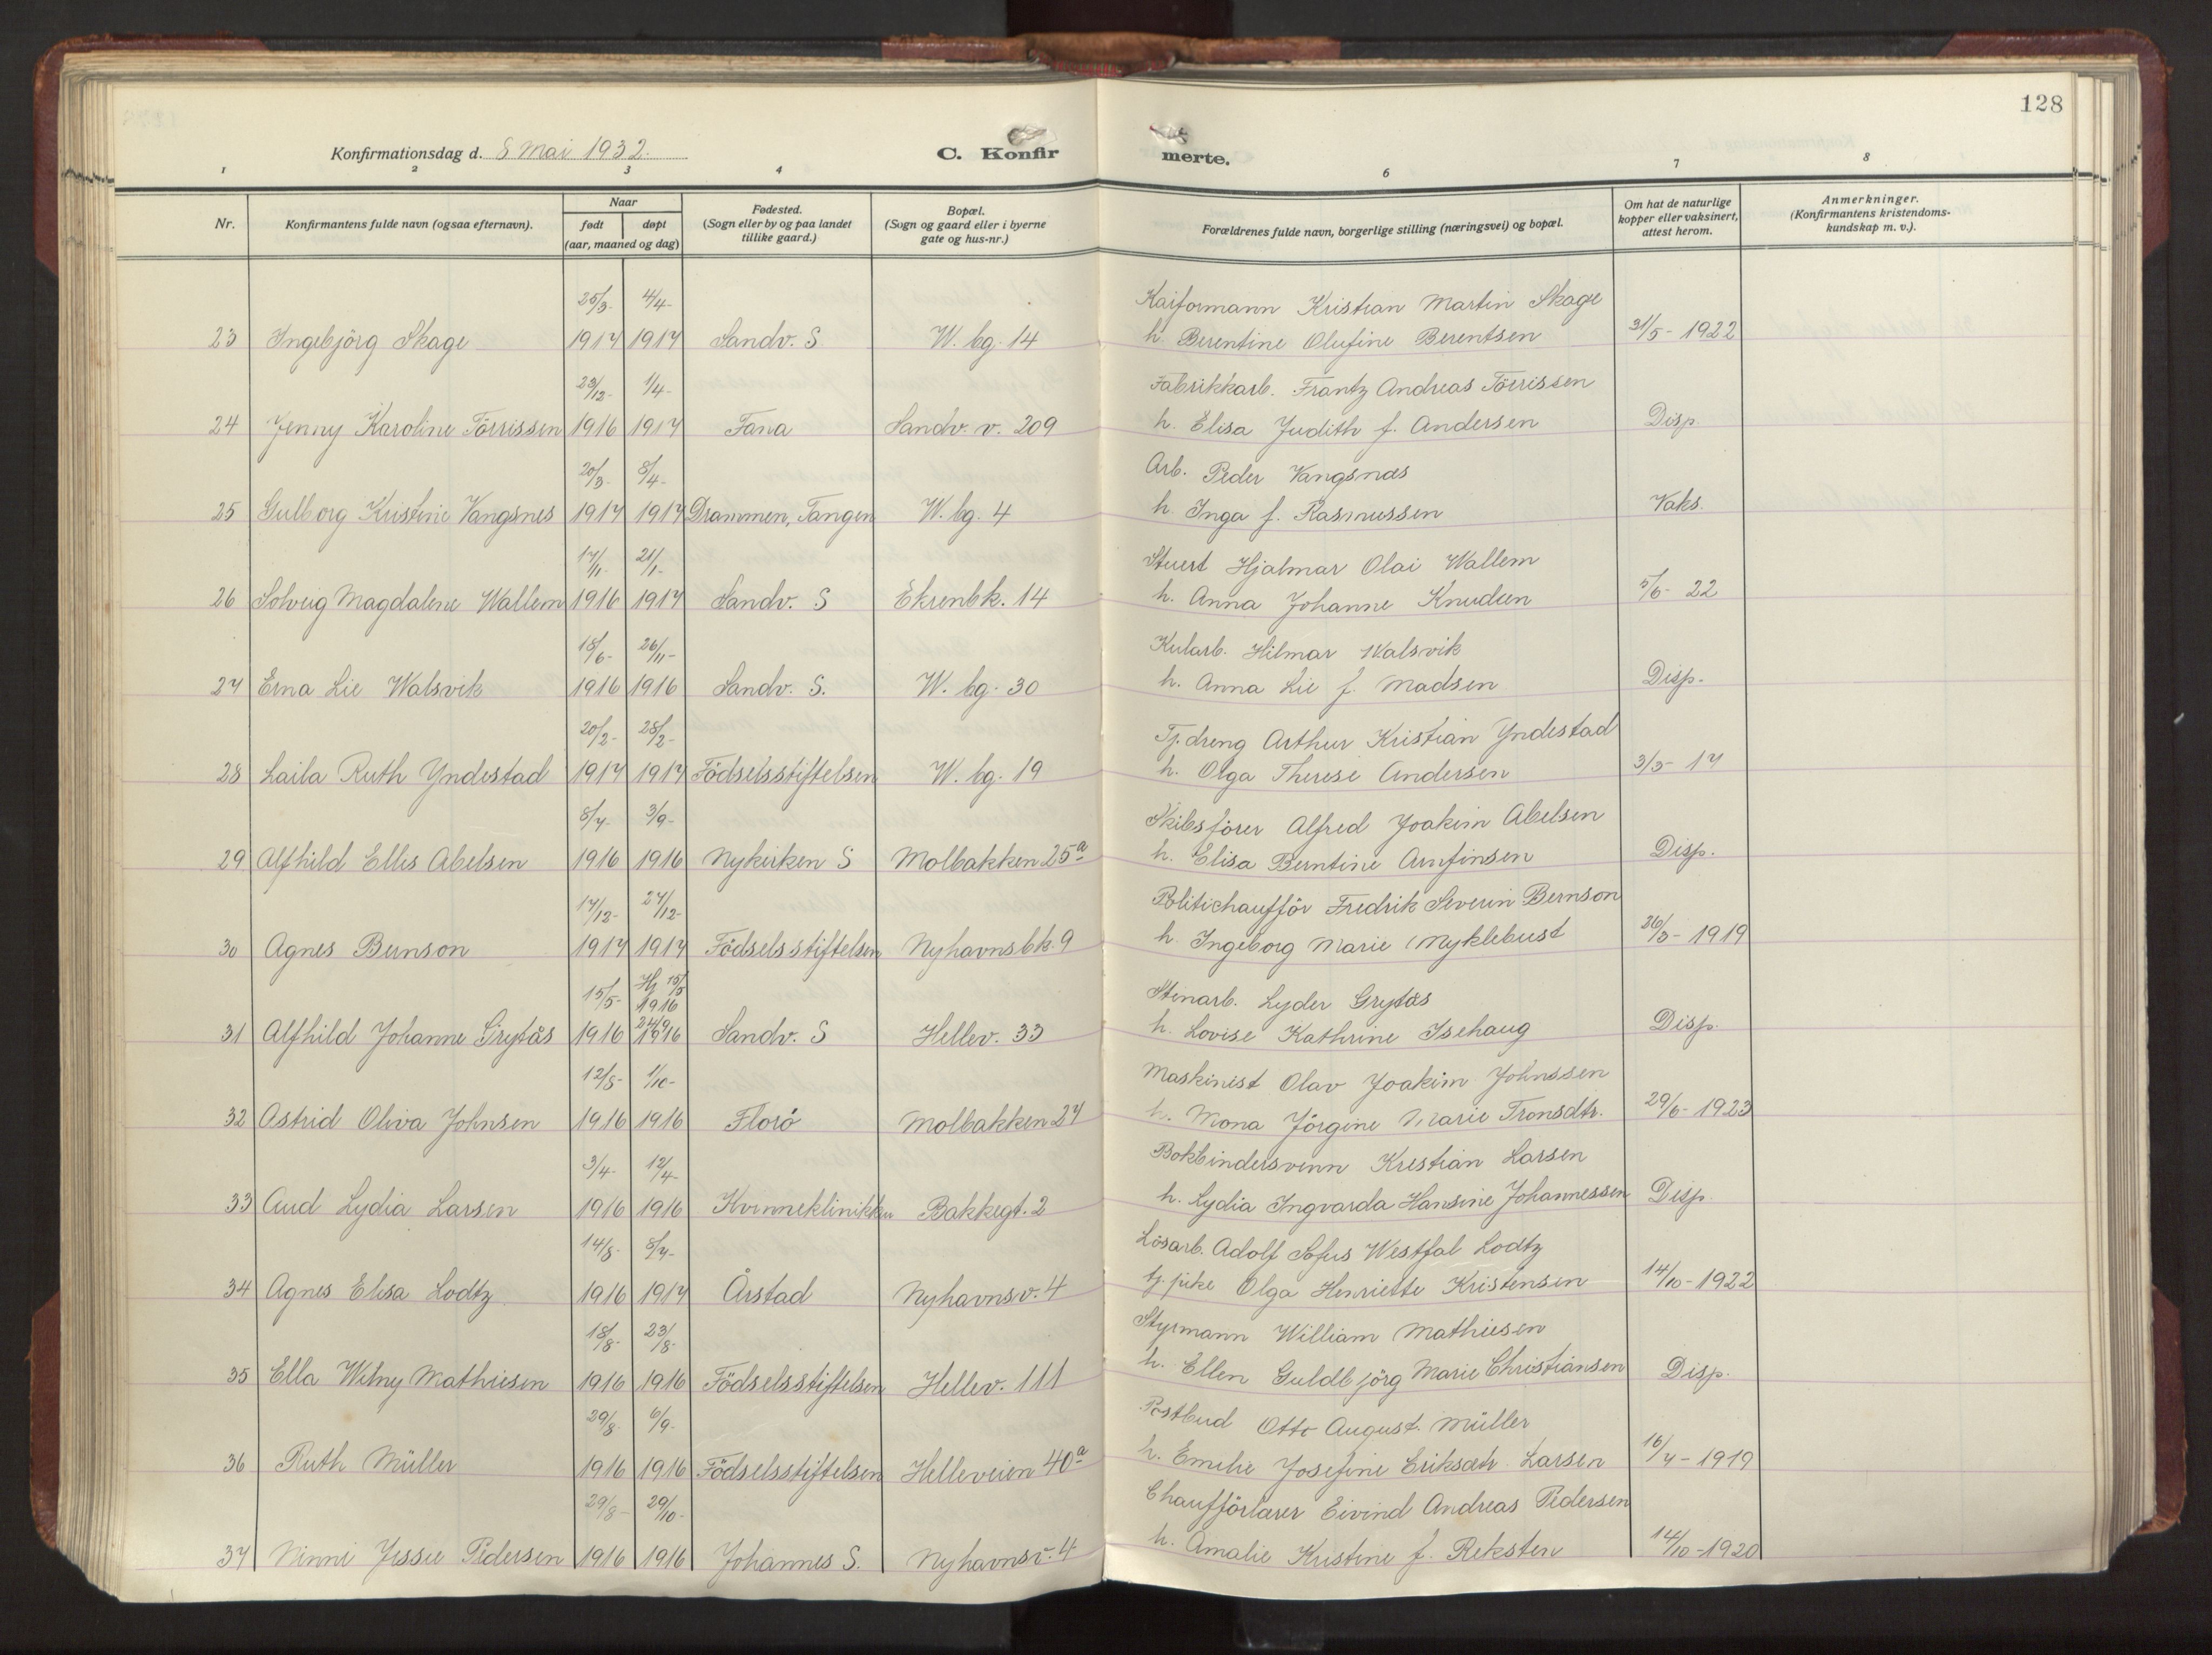 128
Konfirmationsdag d. 8 Mai 1932.
C. Konfir merte.
1 2 3 4 6 7 8
Nr.
Konfirmantens fulde navn (ogsaa efternavn).
Naar
født døpt
(aar, maaned og dag)
Fødested.
(Sogn eller by og paa landet
tillike gaard.)
Bopæl.
(Sogn og gaard eller i byerne
gate og hus-nr.)
Forældrenes fulde navn, borgerlige stilling (næringsvei) og bopæl.
Om hat de naturlige
kopper eller vaksinert,
attest herom.
Anmerkninger.
(Konfirmantens kristendoms-
kundskap m. v.).
25/3- 4/4- Kaiformann Kristian Martin Skage
23 Ingebjörg Skage 1917 1917 Sandv. S W. bg. 14 h. Berentine Olufine Berentsen 31/5- 1922
23/12- 1/4- Fabrikkarb. Frantz Andreas Törrissen
24 Jenny Karoline Törrissen 1916 1917 Fana Sandv. v. 209 h. Elisa Judith f. Andersen Disp.
20/3- 8/4- Arb. Peder Vangsnæs
25 Gulborg Kristine Vangsnes 1917 1917 Drammen, Tangen W. bg. 4 h. Inga f. Rasmussen Vaks.
17/11- 21/1- Stuert Hjalmar Olai Wallem
26 Solveig Magdalene Wallem 1916 1917 Sandv. S Ekrenbk. 14 h. Anna Johanne Knudsen 5/6- 22
18/6- 26/11- Kularb. Hilmar Walsvik
27 Erna Lie Walsvik 1916 1916 Sandv. S. W. bg. 30 h. Anna Lie f. Madsen Disp.
20/2- 28/2- Tj.dreng Arthur Kristian Yndestad
28 Laila Ruth Yndestad 1917 1917 Födselsstiftelsen W. bg. 19 h. Olga Therese Andersen 3/3- 17
8/7- 3/9- Skibsförer Alfred Joakim Abelsen
29 Alfhild Ellis Abelsen 1916 1916 Nykirken S Molbakken 25a h. Elisa Berntine Arnfinsen Disp.
17/12- 27/12- Politichaufför Fredrik Severin Bernson
30 Agnes Bernson 1917 1917 Födselsstiftelsen Nyhavnsbk. 9 h. Ingeborg Marie Myklebust 26/3- 1919
15/5- Hj 15/5 1916 Stenarb. Lyder Grytås
31 Alfhild Johanne Grytås 1916 24/9 1916 Sandv. S Hellev. 33 h. Lovise Kathrine Isehaug Disp.
12/8- 1/10- Maskinist Olav Joakim Johnssen
32 Astrid Oliva Johnsen 1916 1916 Florö Molbakken 27 h. Mona Jörgine Marie Tronsdtr. 29/6- 1923
3/4- 12/4- Bokbindersvenn Kristian Larsen
33 Aud Lydia Larsen 1916 1916 Kvinneklinikken Bakkegt. 2 h. Lydia Ingvarda Hansine Johannessen Disp.
14/8- 8/7- Lösarb. Adolf Sofus Westfal Lodtz
34 Agnes Elisa Lodtz 1916 1917 Årstad Nyhavnsv. 4 tj. pike Olga Henriette Kristensen 14/10- 1922
18/8- 23/8- Styrmann William Mathiesen
35 Ella Wilny Mathiesen 1916 1916 Födselsstiftelsen Hellev. 111 h. Ellen Guldbjörg Marie Christiansen Disp.
29/8- 6/9- Postbud Otto August. Müller
36 Ruth Müller 1916 1916 Födselsstiftelsen Helleveien 40a h. Emelie Josefine Eriksdtr. Larsen 16/7- 1919
29/8- 29/10- Chaufförlærer Eivind Andreas Pedersen
37 Ninni Jessie Pedersen 1916 1916 Johannes S. Nyhavnsv. 4 h. Amalie Kristine f. Reksten 14/10- 1920